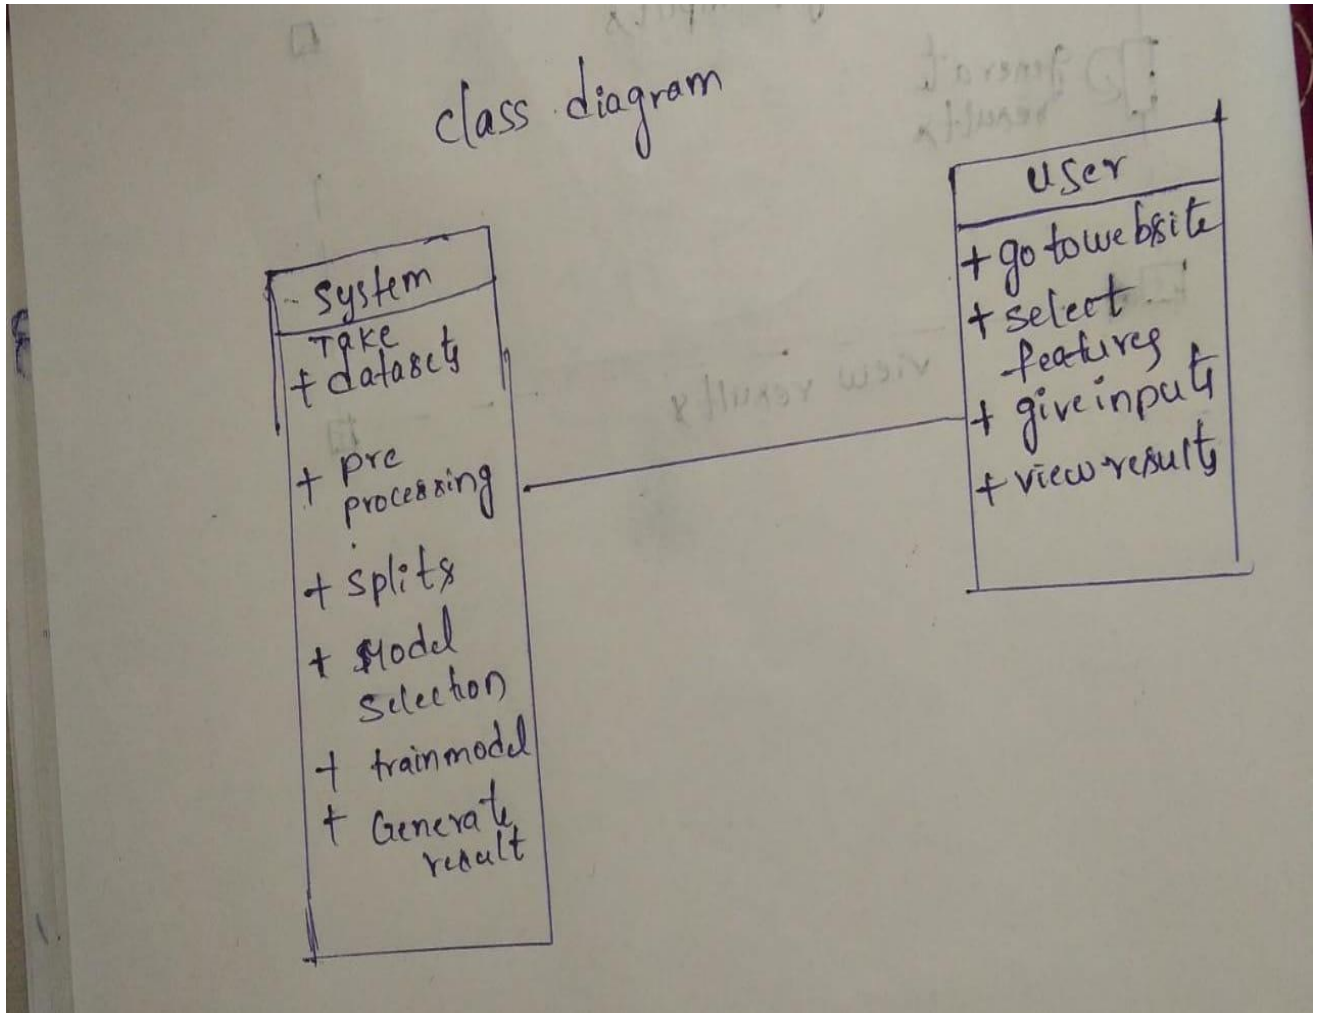 class diagram
system
Take
+ datasets
+ pre
processing
+ splits
+ Model
selection
+ trainmodel
+ Generate
result
user
+ go towebsite
+ select
features
+ giveinputs
+ viewresults
view results
generate
results